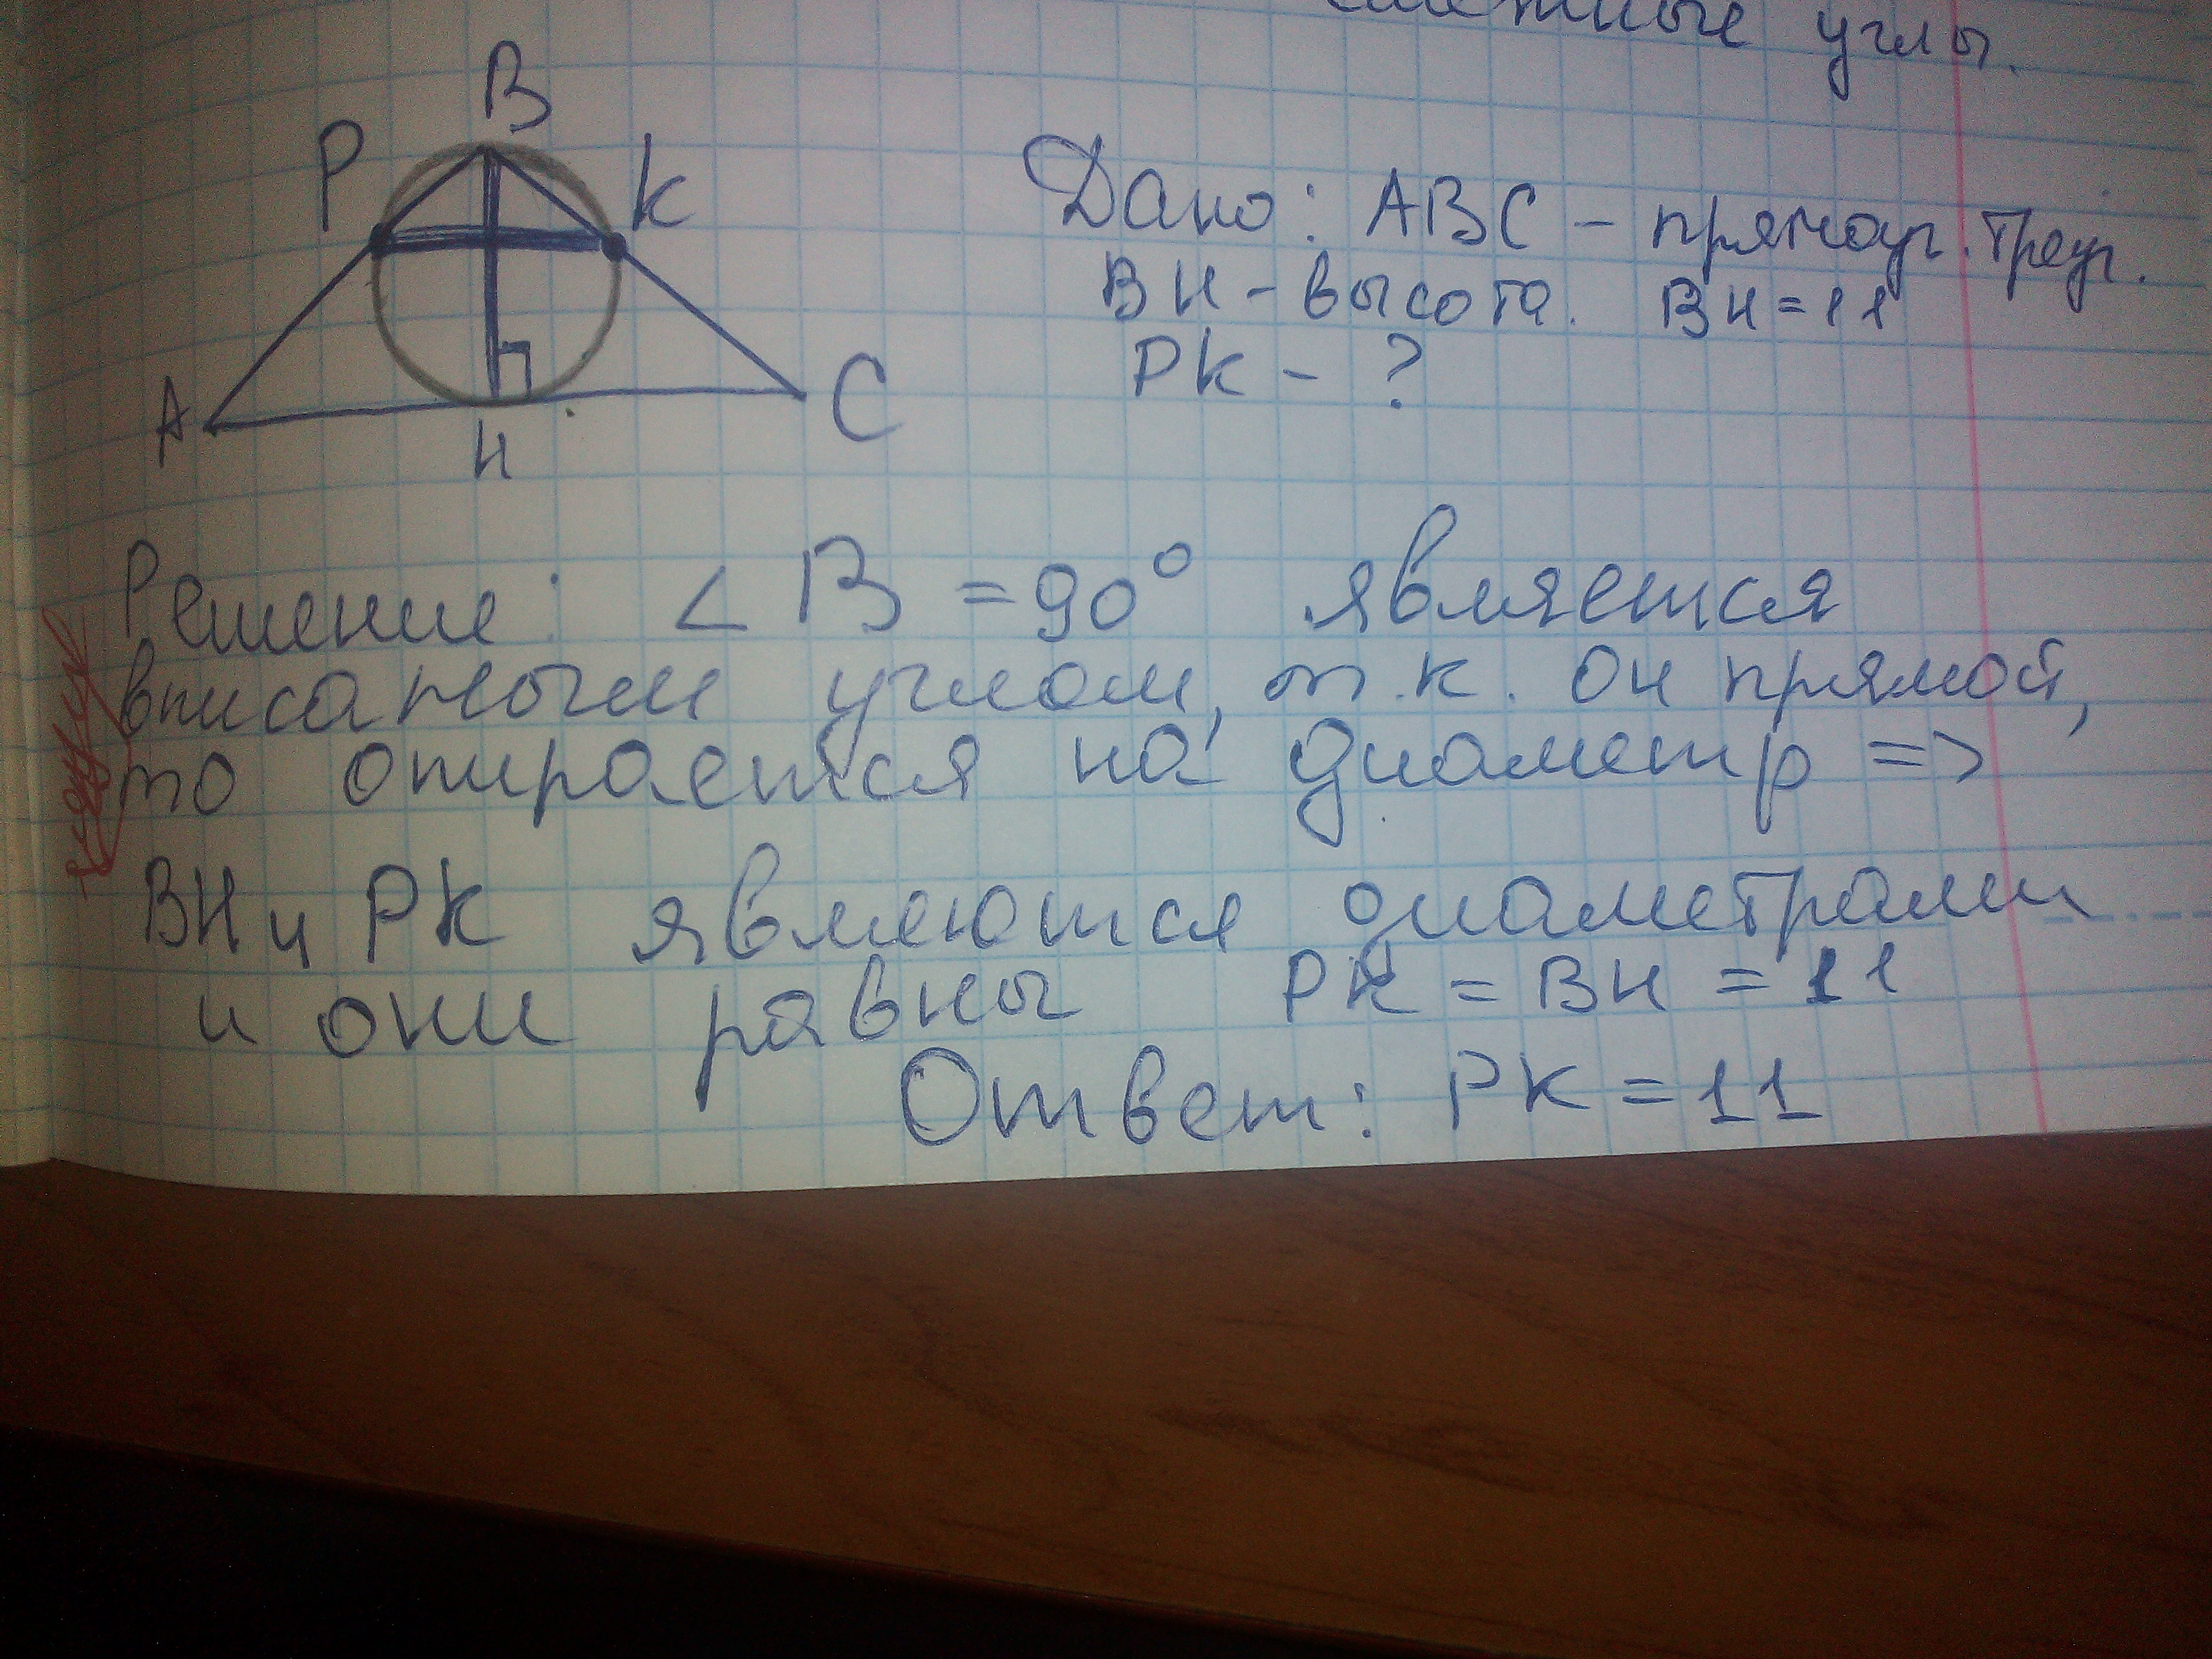 смежные углы.
B
P
K
A
H
C
Дано: ABC - прямоуг. треуг.
BH - высота. BH = 11
PK - ?
Решение: ∠ B = 90° является
вписанным углом, т.к. он прямой,
то опирается на диаметр =>
BH и PK являются диаметрами
и они равны PK = BH = 11
Ответ: PK = 11